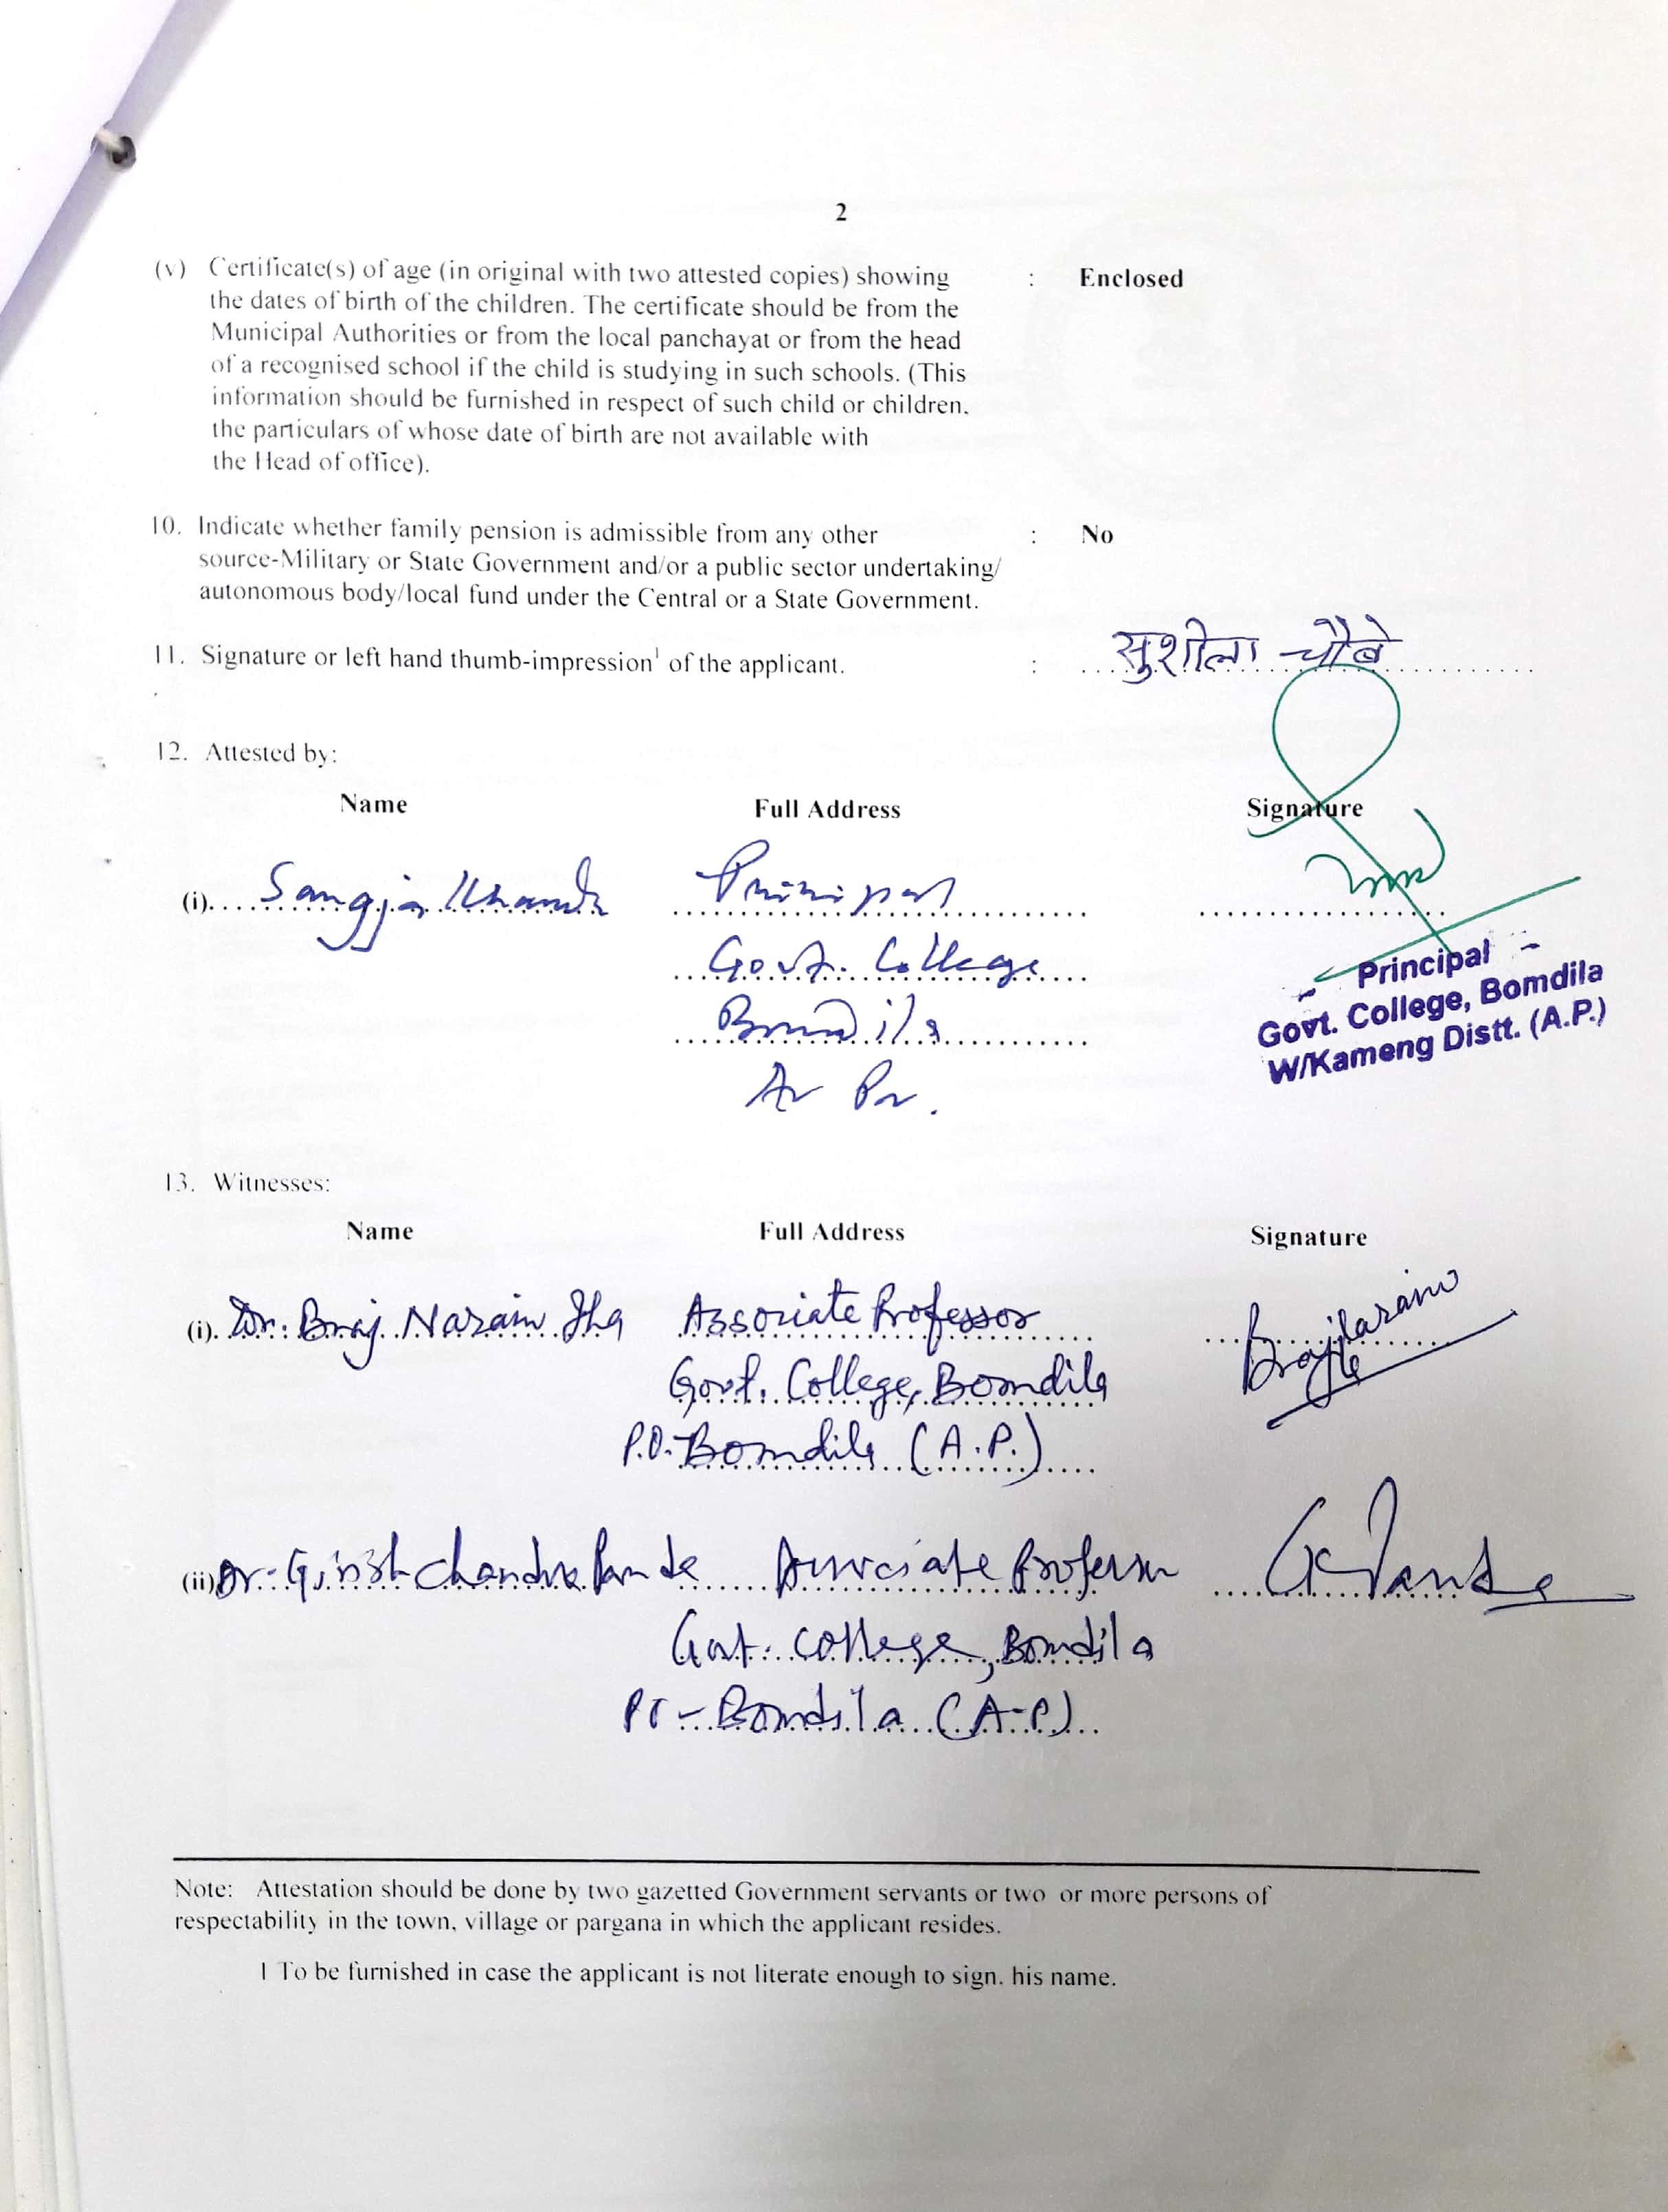 2
(v) Certificate(s) of age (in original with two attested copies) showing : Enclosed
the dates of birth of the children. The certificate should be from the
Municipal Authorities or from the local panchayat or from the head
of a recognised school if the child is studying in such schools. (This
information should be furnished in respect of such child or children.
the particulars of whose date of birth are not available with
the Head of office).
10. Indicate whether family pension is admissible from any other : No
source-Military or State Government and/or a public sector undertaking/
autonomous body/local fund under the Central or a State Government.
11. Signature or left hand thumb-impression¹ of the applicant. : सुशीला चौबे
12. Attested by:
Name Full Address Signature
(i). Sangja Khandu Principal
Govt. College
Bomdila
Ar Pr.
Principal
Govt. College, Bomdila
W/Kameng Distt. (A.P.)
13. Witnesses:
Name Full Address Signature
(i). Dr. Braj Narain Jha Associate Professor
Govt. College, Bomdila
P.O. Bomdila (A.P.)
(ii) Dr. Girish Chandra Pande Associate Professor GC Pande
Govt. College, Bomdila
PO - Bomdila (A-P)
Note: Attestation should be done by two gazetted Government servants or two or more persons of
respectability in the town, village or pargana in which the applicant resides.
1 To be furnished in case the applicant is not literate enough to sign. his name.